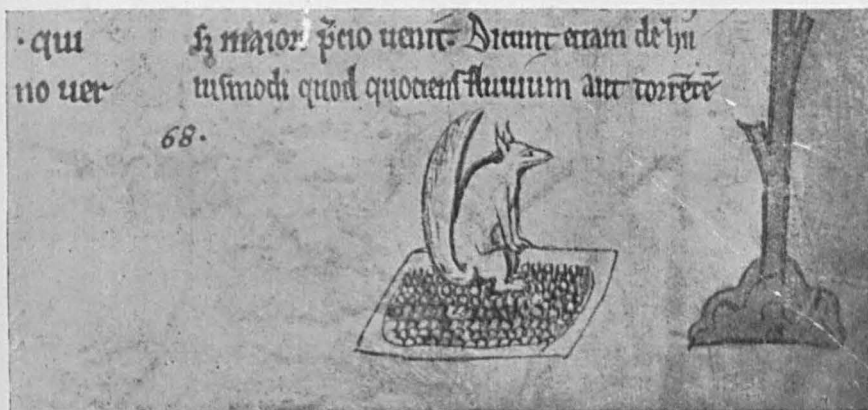 · qui
no uer
sꝫ maiori p̄cio uenit. Dicunt etiam de hu
iusmodi quod quociens fluuium aut torrētē
68.